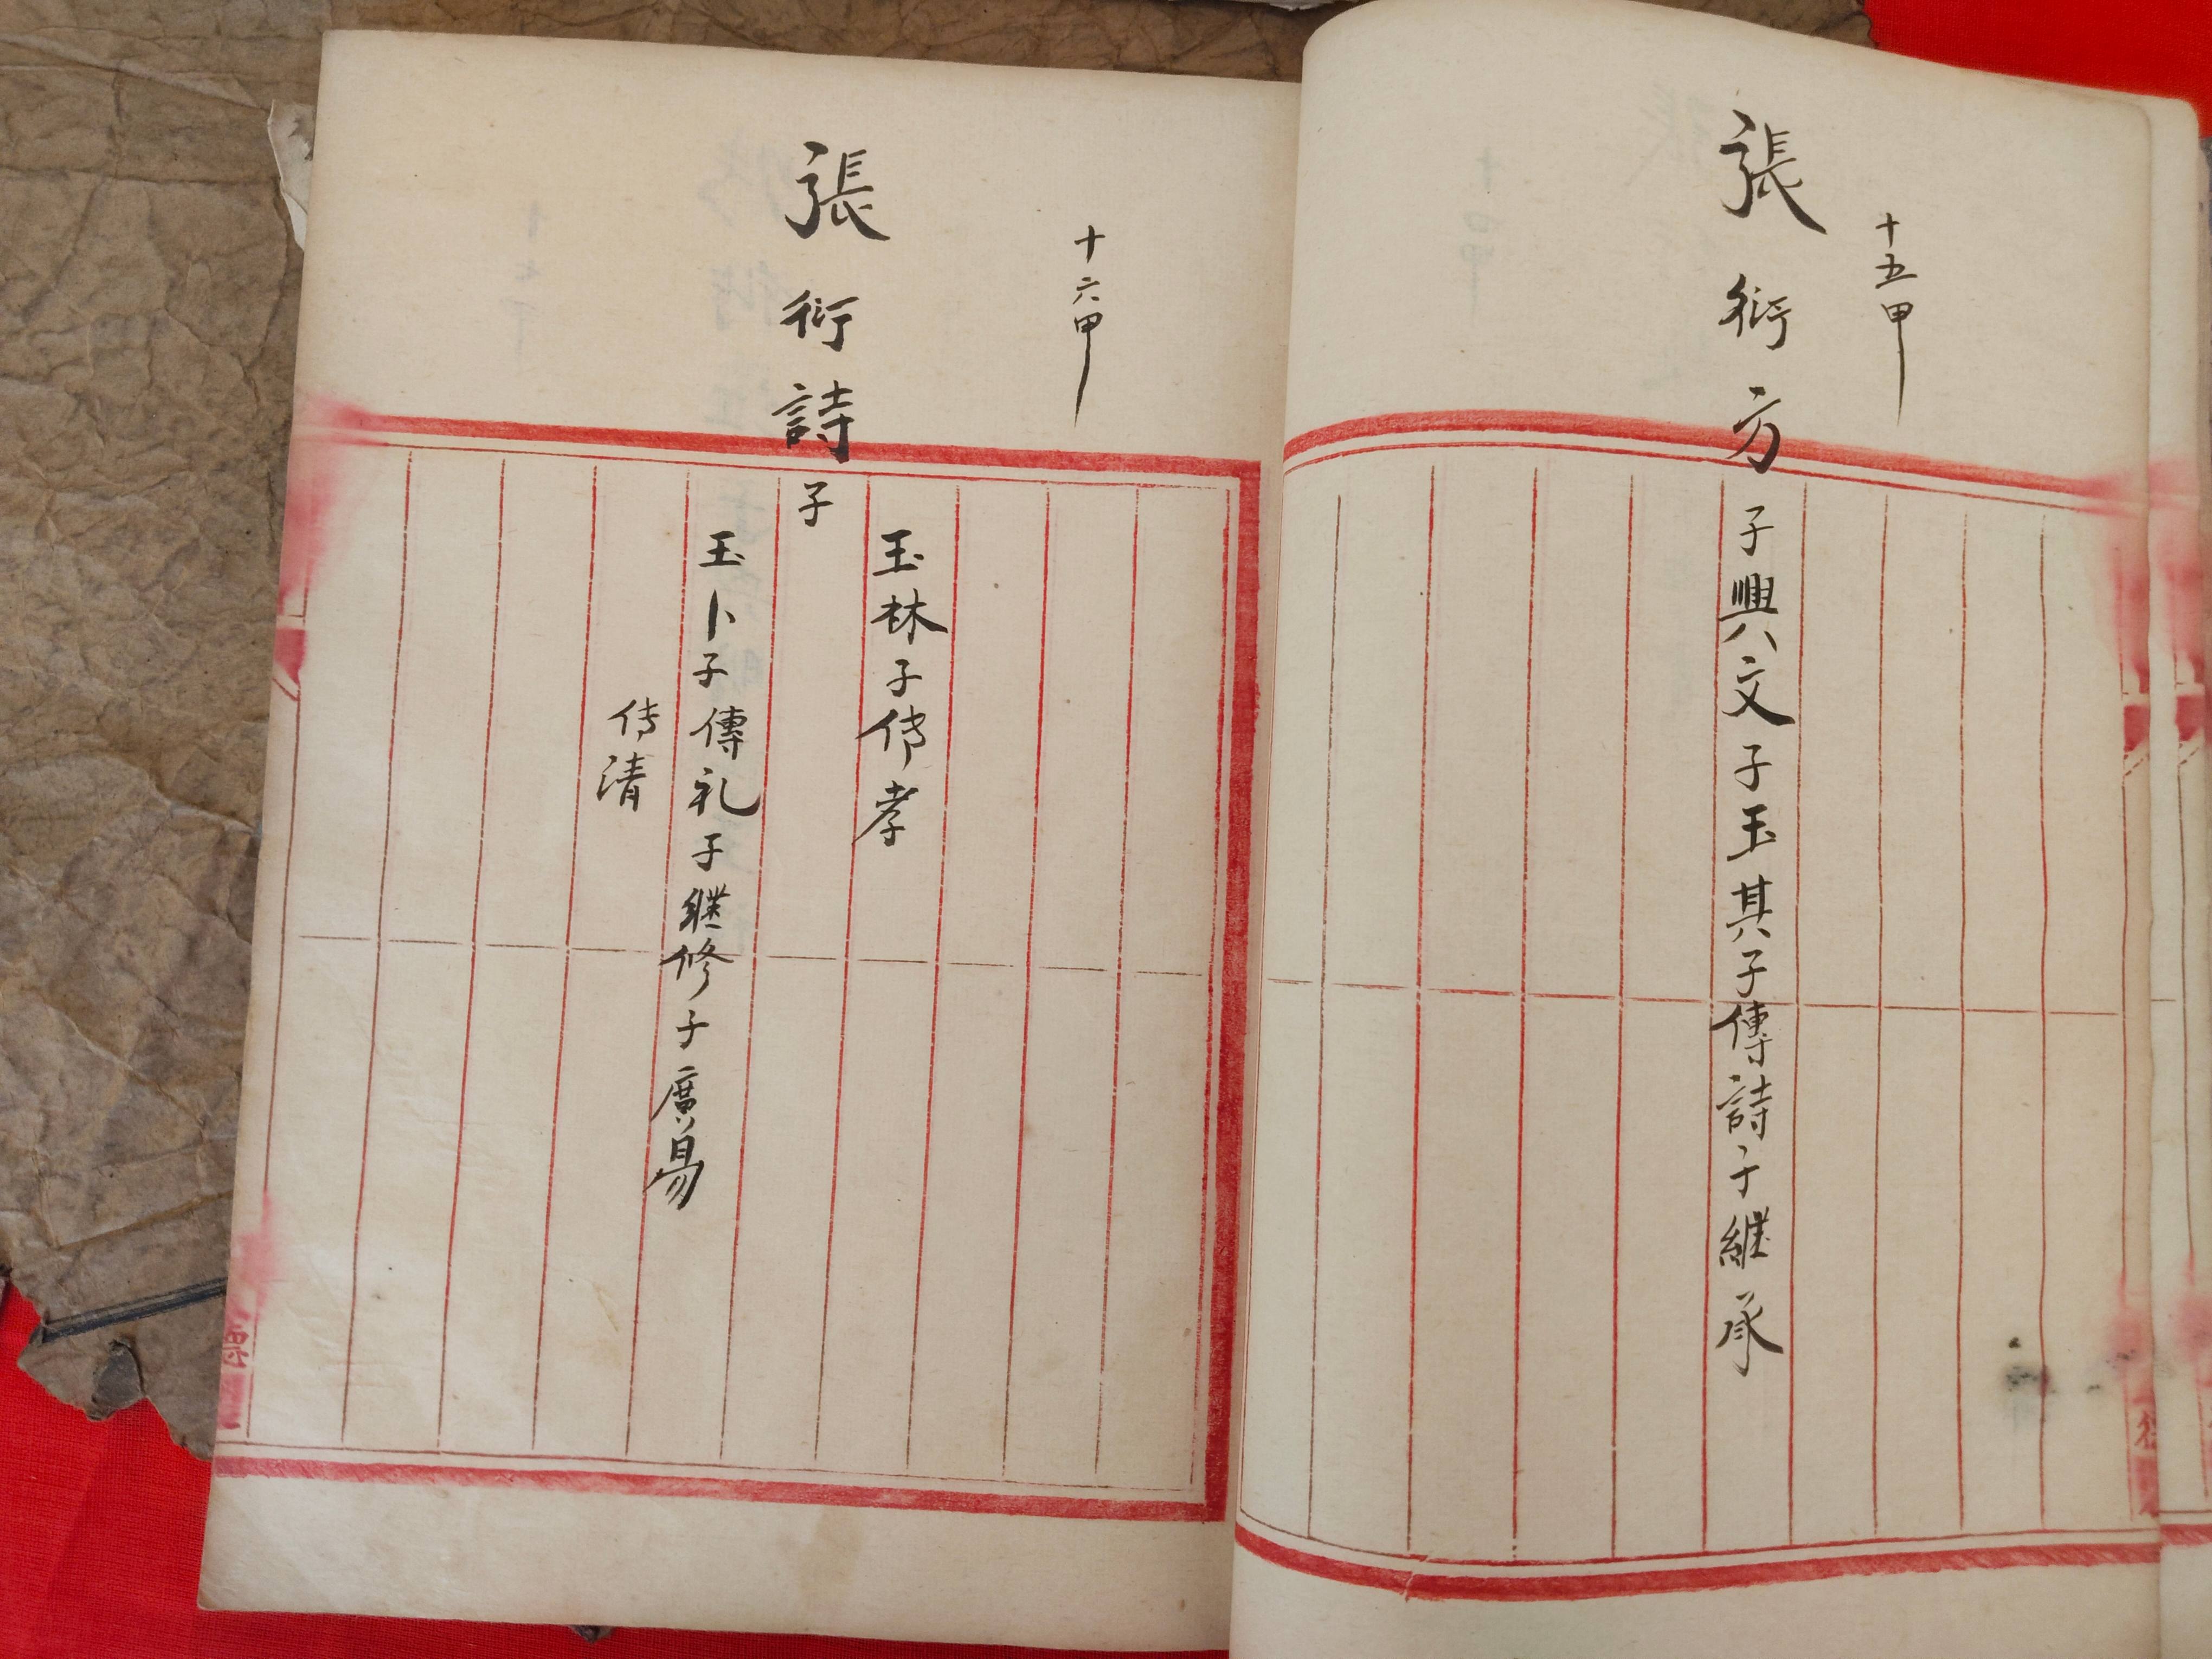 十五甲
張衍方子興文子玉其子傳詩子繼承
十六甲
張衍詩子
玉林子传孝
玉卜子傳礼子繼修子廣易
传清